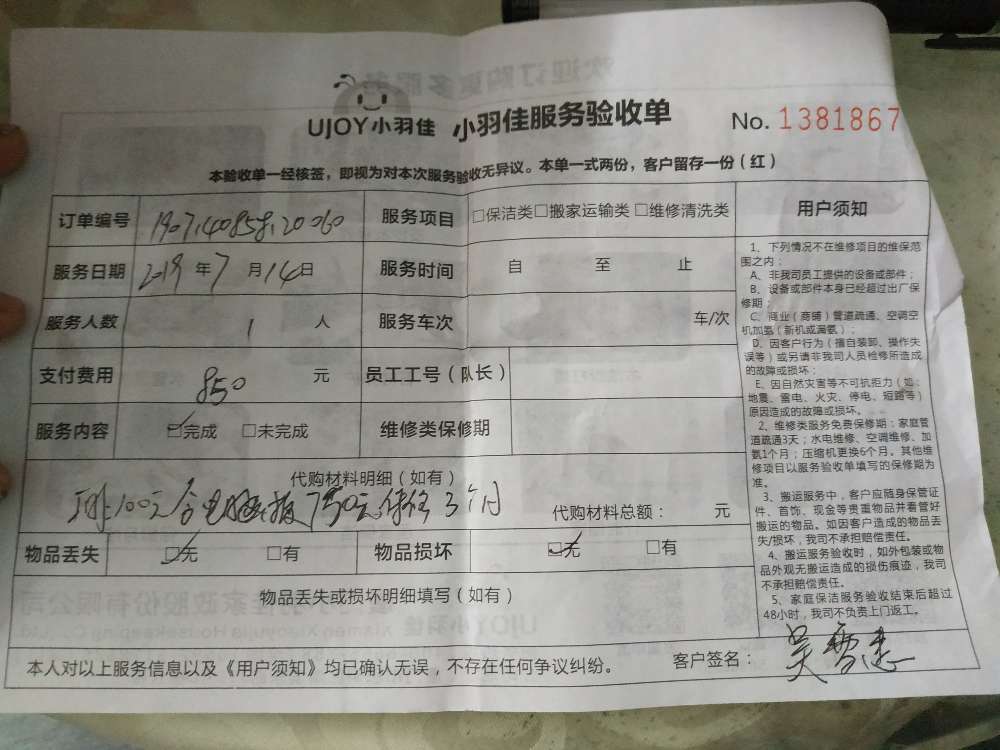 UJOY小羽佳 小羽佳服务验收单 No. 1381867
本验收单一经核签，即视为对本次服务验收无异议。本单一式两份，客户留存一份（红）
订单编号 190714085820060 服务项目 □保洁类□搬家运输类□维修清洗类
服务日期 2019 年 7 月 14 日 服务时间 自 至 止
服务人数 1 人 服务车次 车/次
支付费用 850 元 员工工号（队长）
服务内容 ☑完成 □未完成 维修类保修期
代购材料明细（如有）
100元 750元 3个月 代购材料总额： 元
物品丢失 ☑无 □有 物品损坏 ☑无 □有
物品丢失或损坏明细填写（如有）
用户须知
1、下列情况不在维修项目的维保范
围之内：
A、非我司员工提供的设备或部件；
B、设备或部件本身已经超过出厂保
修期；
C、商业（商铺）管道疏通、空调空
机加氨（新机或漏氨）；
D、因客户行为（擅自装卸、操作失
误等）或另请非我司人员检修所造成
的故障或损坏；
E、因自然灾害等不可抗拒力（如：
地震、雷电、火灾、停电、短路等）
原因造成的故障或损坏。
2、维修类服务免费保修期：家庭管
道疏通3天；水电维修、空调维修、加
氨1个月；压缩机更换6个月。其他维
修项目以服务验收单填写的保修期为
准。
3、搬运服务中，客户应随身保管证
件、首饰、现金等贵重物品并看管好
搬运的物品。如因客户造成的物品丢
失/损坏，我司不承担赔偿责任。
4、搬运服务验收时，如外包装或物
品外观无搬运造成的损伤痕迹，我司
不承担赔偿责任。
5、家庭保洁服务验收结束后超过
48小时，我司不负责上门返工。
本人对以上服务信息以及《用户须知》均已确认无误，不存在任何争议纠纷。 客户签名： 吴雪